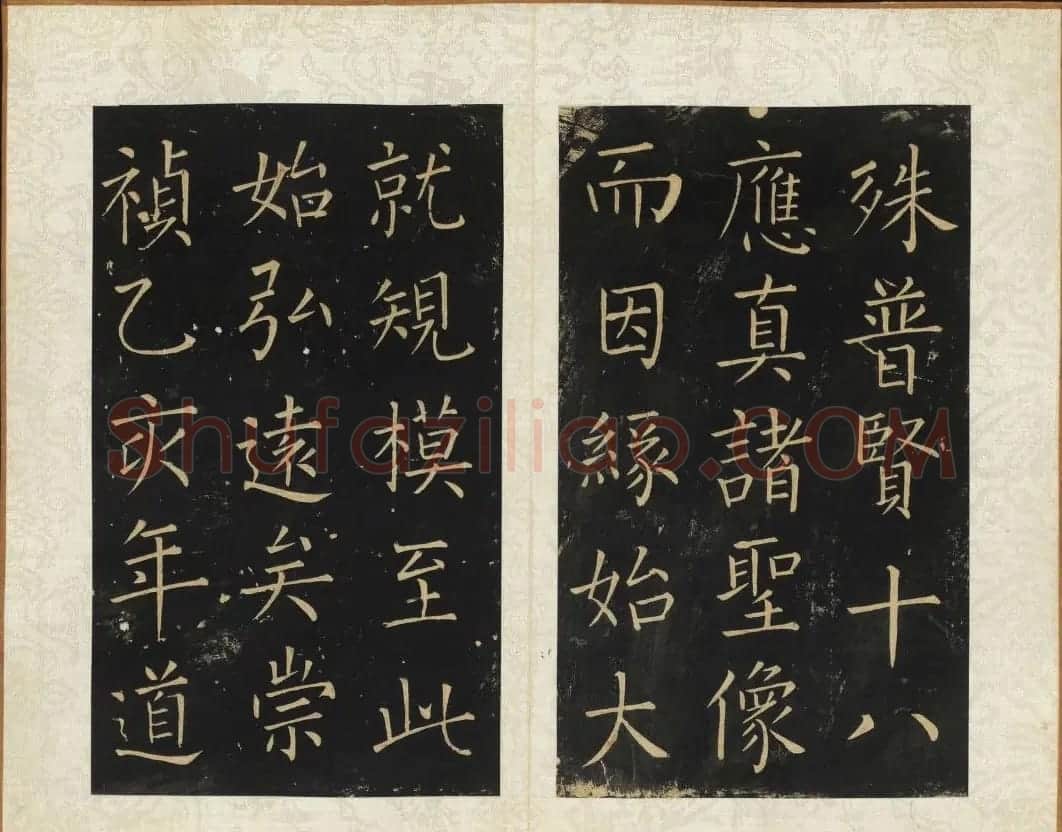 殊普賢十八
應真諸聖像
而因緣始大
就規模至此
始弘遠矣崇
禎乙亥年道
Shufaziliao.COM